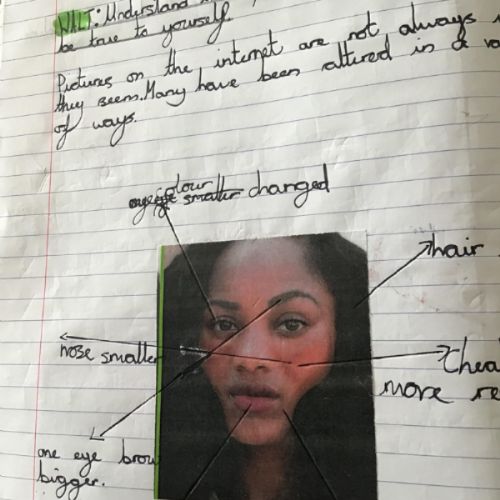 WALT: Understand
be true to yourself.
Pictures on the internet are not always
they seem. Many have been altered in a
of ways.
colour
eye smaller changed
hair
nose smaller
more
one eye brow
bigger.